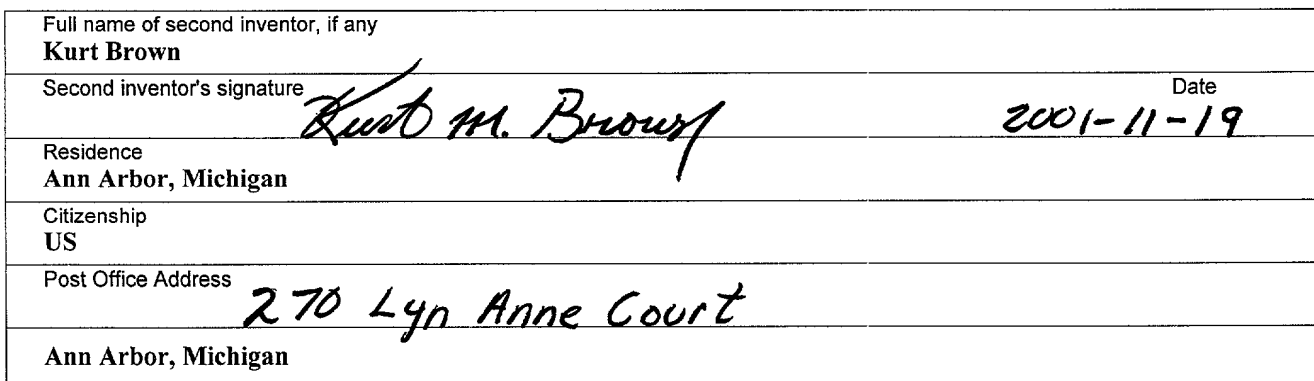 Full name of second inventor, if any
Kurt Brown
Second inventor's signature Kurt M. Brown Date 2001-11-19
Residence
Ann Arbor, Michigan
Citizenship
US
Post Office Address 270 Lyn Anne Court
Ann Arbor, Michigan